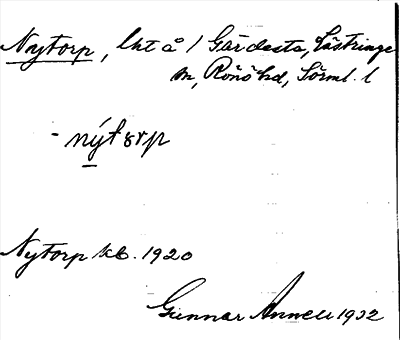 Nytorp, lht å 1 Gärdesta, Västringe
sn, Rönö hd, Sörml. l
- nýtorp
Nytorp kb. 1920
Gunnar Annell 1932